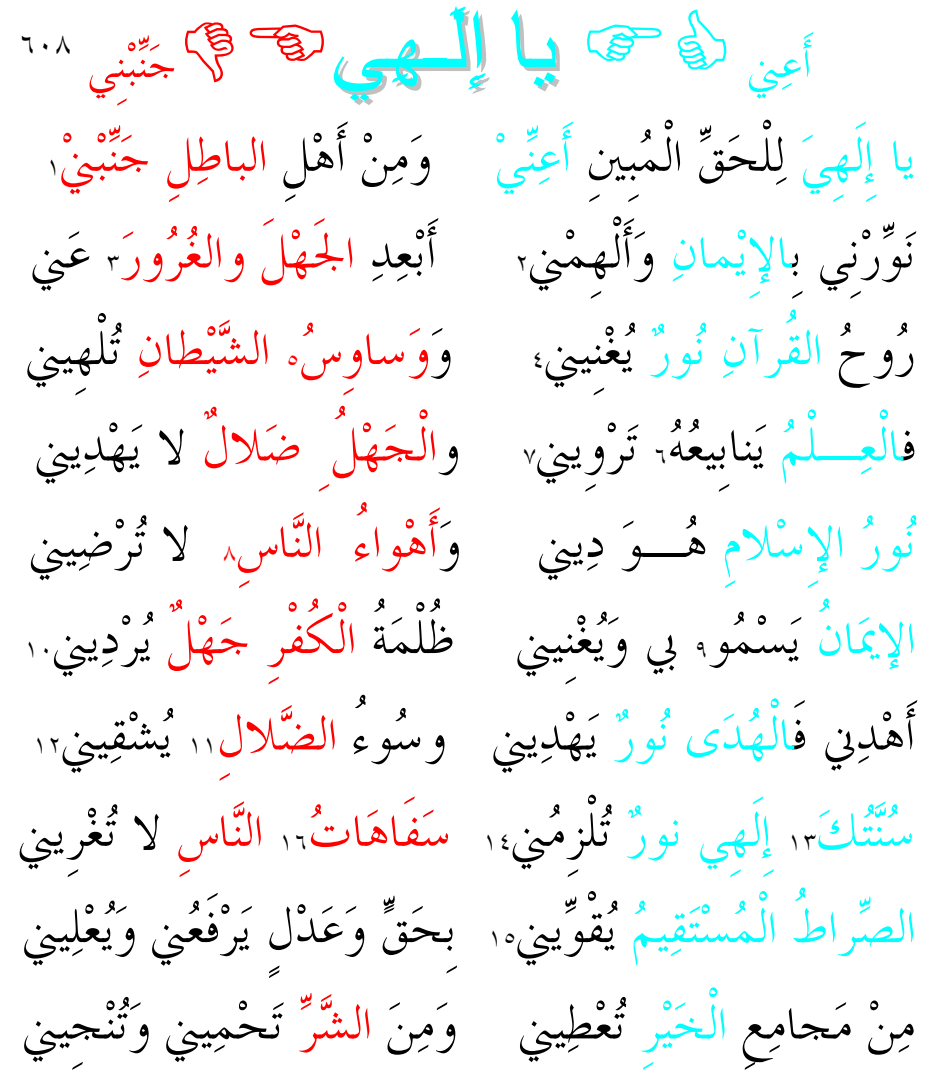 أَعِني يا إِلَـهِي جَنِّبْنِي ٦٠٨
يا إِلَهِيَ لِلْحَقِّ الْمُبِينِ أَعِنِّيْ وَمِنْ أَهْلِ الباطِلِ جَنِّبْنيْ١
نَوِّرْنِي بِالإِيْمانِ وَأَلْهِمْني٢ أَبْعِدِ الجَهْلَ والغُرُورَ٣ عَني
رُوحُ القُرآنِ نُورٌ يُغْنِيني٤ وَوَساوِسُ٥ الشَّيْطانِ تُلْهِيني
فالْعِـــلْمُ يَنابِيعُهُ٦ تَرْوِيني٧ والْجَهْلُ ِ ضَلالٌ لا يَهْدِيني
نُورُ الإِسْلامِ هُـــوَ دِيني وَأَهْواءُ النَّاسِ٨ لا تُرْضِيني
الإِيمَانُ يَسْمُو٩ بي وَيُغْنِيني ظُلْمَةُ الْكُفْرِ جَهْلٌ يُرْدِيني١٠
أَهْدِني فَالْهُدَى نُورٌ يَهْدِيني وسُوءُ الضَّلالِ١١ يُشْقِيني١٢
سُنَّتُكَ١٣ إِلَهِي نورٌ تُلْزِمُني١٤ سَفَاهَاتُ١٦ النَّاسِ لا تُغْرِيني
الصِّراطُ الْمُسْتَقِيمُ يُقْوِّيني١٥ بِحَقٍّ وَعَدْلٍ يَرْفَعُني وَيُعْلِيني
مِنْ مَجامِعِ الْخَيْرِ تُعْطِيني وَمِنَ الشَّرِّ تَحْمِيني وَتُنْجِيني